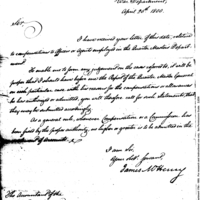 War Department,
April 30th 1800.
Sir,
I have received your letter of this date, relative
to compensations to Officers or Agents employed in the Quarter Masters Depart
ment.
To enable me to form any judgement on the cases referred to, it will be
proper that I should to have before me the Report of the Quarter Master General
on each particular case with his reasons for the compensations or allowances
he has
or admitted, you will therefore call for such Statements that
they may be submitted accordingly.
As a general rule, whenever Compensation or a Commission has
been fixed by the proper authority no higher or greater is to be admitted in the
I am Sir,
Your obt. Servant,
James McHenry
The Accountant of the